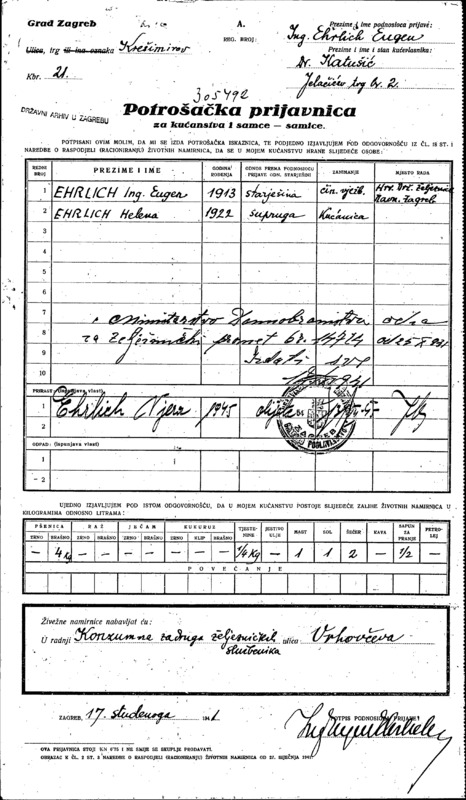 Grad Zagreb
A.
REG. BROJ:
Prezime i ime podnosioca prijave:
Ing. Ehrlich Eugen
Ulica, trg ili ina oznaka Krešimirov
Prezime i ime i stan kućevlasnika:
Dr. Katušić
Kbr. 21.
Jelačićev trg br. 2.
305492
DRŽAVNI ARHIV U ZAGREBU
Potrošačka prijavnica
za kućanstva i samce — samice.
POTPISANI OVIM MOLIM, DA MI SE IZDA POTROŠAČKA ISKAZNICA, TE PODJEDNO IZJAVLJUJEM POD ODGOVORNOŠĆU IZ ČL. 15 ST. 1
NAREDBE O RASPODJELI (RACIONIRANJU) ŽIVOTNIH NAMIRNICA, DA SE U MOJEM KUĆANSTVU HRANE SLIJEDEĆE OSOBE:
REDNI BROJ PREZIME I IME GODINA ROĐENJA ODNOS PREMA PODNOSIOCU PRIJAVE ODN. STARJEŠINI ZANIMANJE MJESTO RADA
1 EHRLICH Ing. Eugen 1913 starješina čin. vježb. Hrv. Drž. željeznice Ravn. Zagreb
2 EHRLICH Helena 1922 supruga Kućanica
3
4
5
6
7 Ministarstvo Domobranstva
8 za Željeznički promet br. 14774
9 Izdati
10
PRIRAST (ispunjava vlast)
1 Ehrlich 1945 dijete
2
ZAGREB
OTPAD: (ispunjava vlast)
1
2
UJEDNO IZJAVLJUJEM POD ISTOM ODGOVORNOŠĆU, DA U MOJEM KUĆANSTVU POSTOJE SLIJEDEĆE ZALIHE ŽIVOTNIH NAMIRNICA U
KILOGRAMIMA ODNOSNO LITRAMA:
PŠENICA RAŽ JEČAM KUKURUZ TJESTENINE JESTIVO ULJE MAST SOL ŠEĆER KAVA SAPUN ZA PRANJE PETROLEJ
ZRNO BRAŠNO ZRNO BRAŠNO ZRNO BRAŠNO ZRNO KLIP BRAŠNO
— 4 kg — — — — — — — 1/4 kg — 1 1 2 — 1/2 —
POVEĆANJE
Živežne namirnice nabavljat ću:
U radnji Konzumna zadruga željezničkih službenika ulica Vrhovčeva
ZAGREB, 17. studenoga 1941
POTPIS PODNOSIOCA PRIJAVE:
OVA PRIJAVNICA STOJI KN 0'75 I NE SMIJE SE SKUPLJE PRODAVATI.
OBRAZAC K ČL. 2 ST. 2 NAREDBE O RASPODJELI (RACIONIRANJU) ŽIVOTNIH NAMIRNICA OD 27. SIJEČNJA 1941.